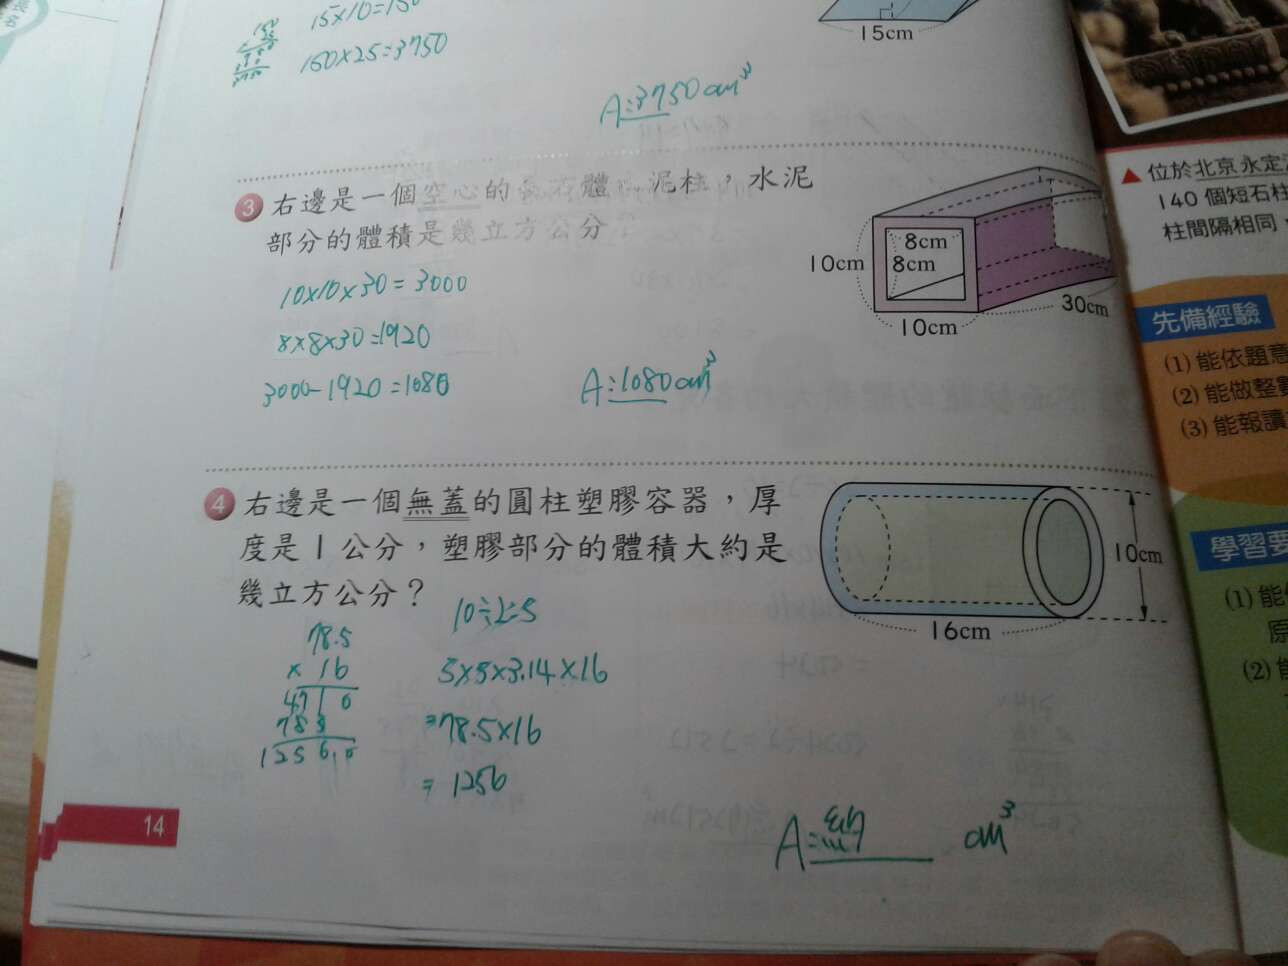 15×10=150
150×25=3750
15cm
A:3750cm³
3 右邊是一個空心的 體 泥柱，水泥
部分的體積是幾立方公分
10×10×30=3000
8×8×30=1920
3000-1920=1080
A:1080cm³
8cm
8cm
10cm
10cm
30cm
4 右邊是一個無蓋的圓柱塑膠容器，厚
度是1公分，塑膠部分的體積大約是
幾立方公分？
10÷2=5
5×5×3.14×16
=78.5×16
=1256
78.5
× 16
4710
785
1256.0
10cm
16cm
A:約
cm³
14
▲位於北京永定
140個短石柱
柱間隔相同
先備經驗
(1)能依題意
(2)能做整數
(3)能報讀
學習要
(1)能
原
(2)能